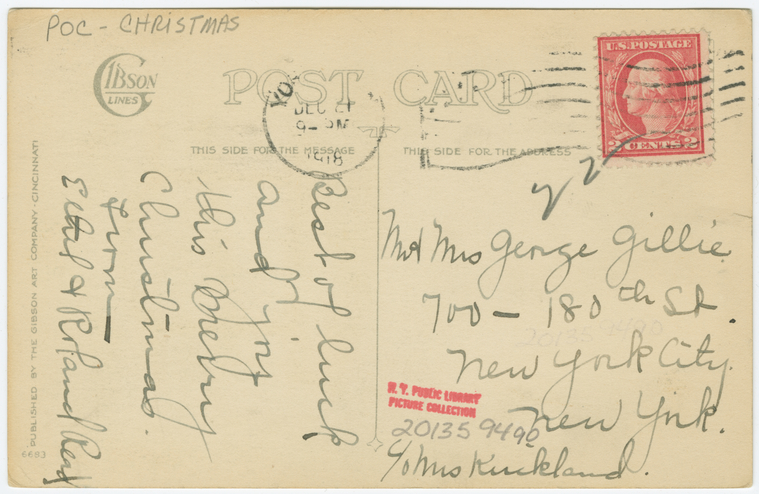 POC - CHRISTMAS
GIBSON
LINES
POST CARD
DEC 21
9- PM
1918
THIS SIDE FOR THE MESSAGE
THIS SIDE FOR THE ADDRESS
U.S. POSTAGE
2 CENTS 2
Best of luck
and joy
this Merry
Christmas.
from
Ethel & Roland
M & Mrs George Gillie
700 - 180th St.
New York City.
New York.
c/o Mrs Kirkland.
N. Y. PUBLIC LIBRARY
PICTURE COLLECTION
20135 9490
20135 9490
PUBLISHED BY THE GIBSON ART COMPANY · CINCINNATI
6683